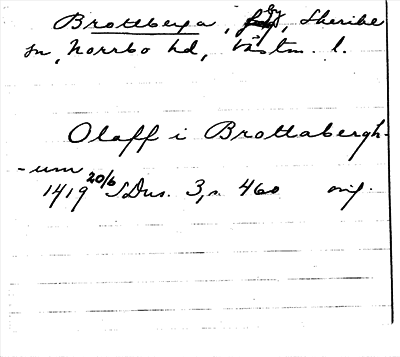 Brottberga, by, Skerike
sn, Norrbo hd, Västm. l.
Olaff i Brottabergh-
-um
1419 20/6 SDns. 3, s. 460 orig.